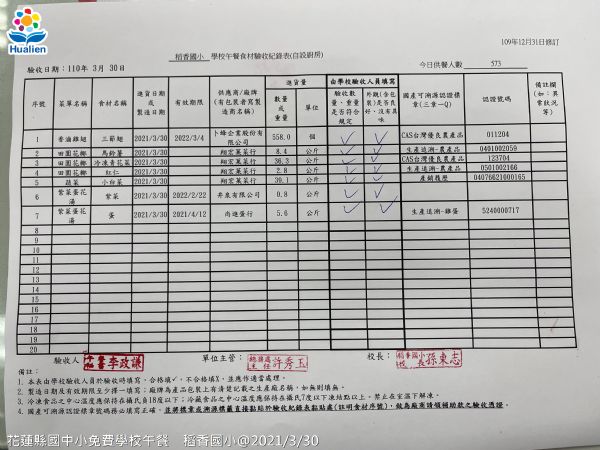 Hualien
109年12月31日修訂
稻香國小 學校午餐食材驗收紀錄表(自設廚房)
驗收日期：110年 3月 30日 今日供餐人數 573
序號 菜單名稱 食材名稱 進貨日期或製造日期 有效期限 供應商/廠牌(有包裝者寫製造商名稱) 進貨量 數量或重量 單位 由學校驗收人員填寫 驗收數量、重量是否符合規定 外觀(含包裝)是否良好、沒有異味 國產可溯源認證標章(三章一Q) 認證號碼 備註欄(如：異常狀況等)
1 香滷雞翅 三節翅 2021/3/30 2022/3/4 卜蜂企業股份有限公司 558.0 個 ✓ ✓ CAS台灣優良農產品 011204
2 田園花椰 馬鈴薯 2021/3/30 翔宏菜菜行 8.4 公斤 ✓ ✓ 生產追溯-農產品 0401002059
3 田園花椰 冷凍青花菜 2021/3/30 翔宏菜菜行 36.3 公斤 ✓ ✓ CAS台灣優良農產品 123704
4 田園花椰 紅仁 2021/3/30 翔宏菜菜行 2.8 公斤 ✓ ✓ 生產追溯-農產品 0501002166
5 蔬菜 小白菜 2021/3/30 翔宏菜菜行 39.1 公斤 ✓ ✓ 產銷履歷 04076621000165
6 紫菜蛋花湯 紫菜 2021/3/30 2022/2/22 井泉有限公司 0.8 公斤 ✓ ✓
7 紫菜蛋花湯 蛋 2021/3/30 2021/4/12 尚進蛋行 5.6 公斤 ✓ ✓ 生產追溯-雞蛋 5240000717
8
9
10
11
12
13
14
15
16
17
18
19
20
驗收人 李政謙 單位主管： 總務處主任 許秀玉 校長： 稻香國小校長 孫東志
備註：
1. 本表由學校驗收人員於驗收時填寫，合格填✓，不合格填X，並應作適當處理。
2. 製造日期及有效期限至少擇一填寫；廠牌為產品包裝上有清楚記載之生產廠名稱，如無則填無。
3. 冷凍食品之中心溫度應保持在攝氏負18度以下；冷藏食品之中心溫度應保持在攝氏7度以下凍結點以上，禁止在室溫下解凍。
4. 國產可溯源認證標章號碼務必填寫正確，並將標章或溯源標籤直接黏貼於驗收紀錄表黏貼處(註明食材序號)，做為廠商請領補助款之驗收憑證。
花蓮縣國中小免費學校午餐 稻香國小@2021/3/30